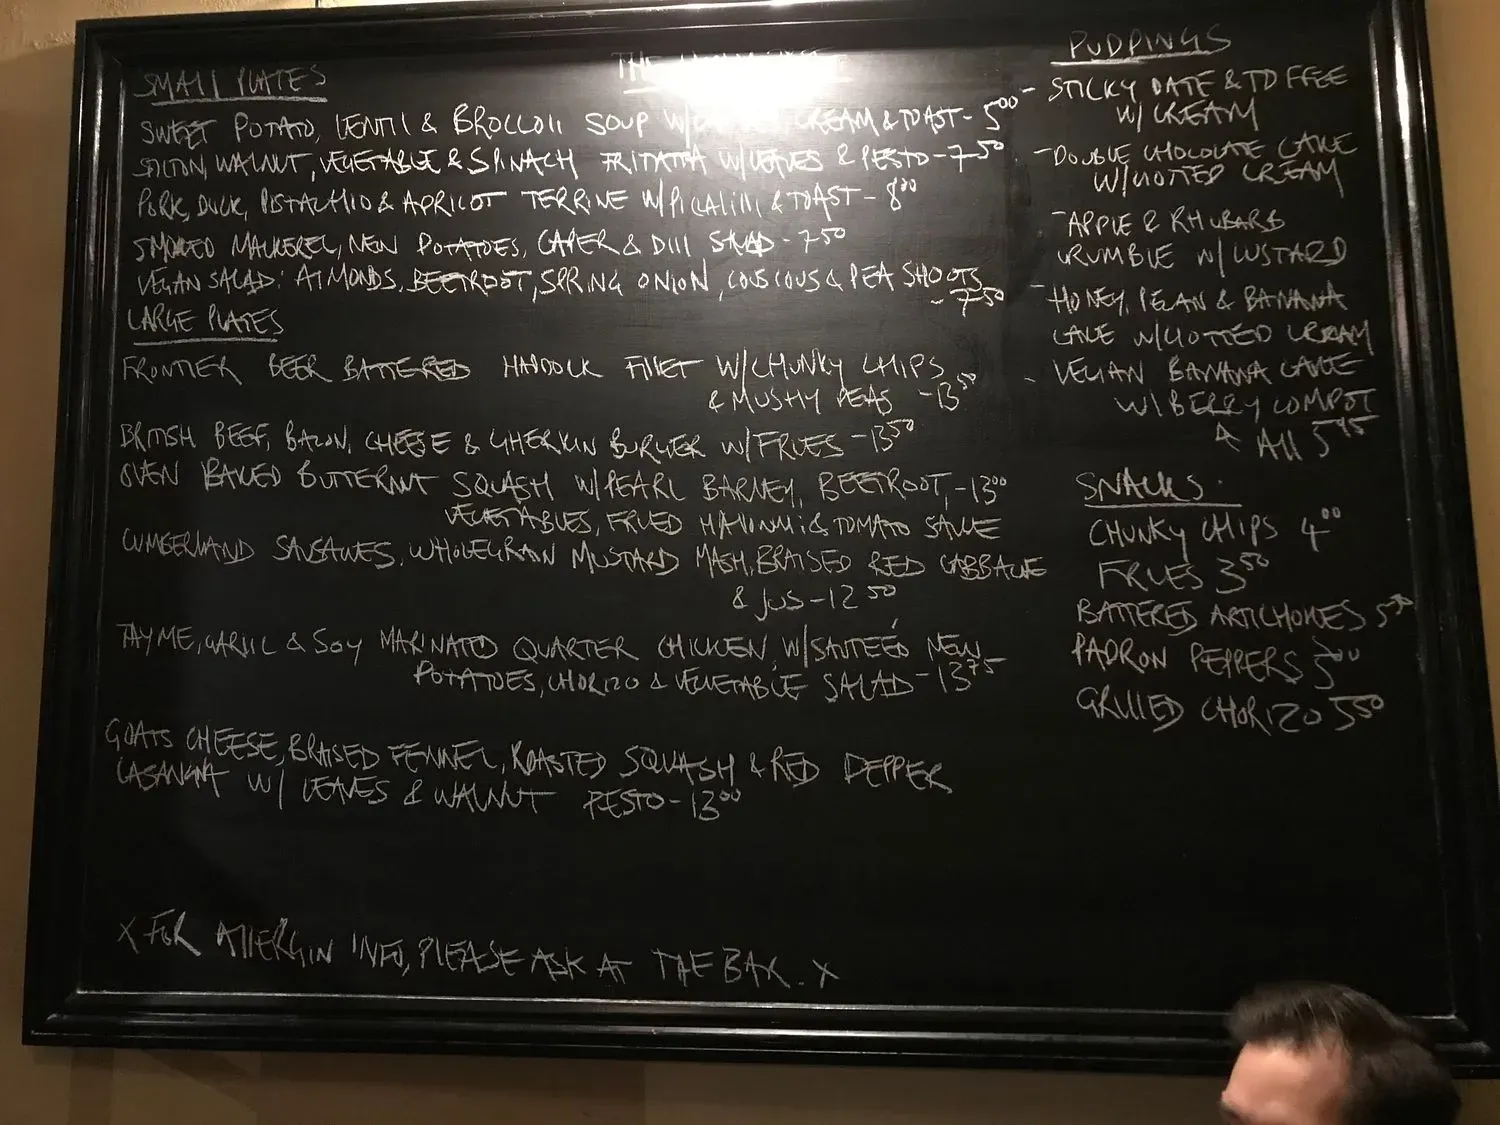 SMALL PLATES
SWEET POTATO, LENTIL & BROCCOLI SOUP W/ CREAM & TOAST - 5⁰⁰
STILTON, WALNUT, VEGETABLE & SPINACH FRITATTA W/LEAVES & PESTO - 7⁵⁰
PORK, DUCK, PISTACHIO & APRICOT TERRINE W/PICCALILLI & TOAST - 8⁰⁰
SMOKED MACKEREL, NEW POTATOES, CAPER & DILL SALAD - 7⁵⁰
VEGAN SALAD: ALMONDS, BEETROOT, SPRING ONION, COUSCOUS & PEA SHOOTS
- 7⁵⁰
LARGE PLATES
FRONTIER BEER BATTERED HADDOCK FILLET W/CHUNKY CHIPS
& MUSHY PEAS - 13⁵⁰
BRITISH BEEF, BACON, CHEESE & GHERKIN BURGER W/FRIES - 13⁵⁰
OVEN BAKED BUTTERNUT SQUASH W/PEARL BARLEY, BEETROOT, - 13⁰⁰
VEGETABLES, FRIED HALLOUMI & TOMATO SAUCE
CUMBERLAND SAUSAGES, WHOLEGRAIN MUSTARD MASH, BRAISED RED CABBAGE
& JUS - 12⁵⁰
THYME, GARLIC & SOY MARINATED QUARTER CHICKEN W/SAUTEÉD NEW
POTATOES, CHORIZO & VEGETABLE SALAD - 13⁷⁵
GOATS CHEESE, BRAISED FENNEL, ROASTED SQUASH & RED PEPPER
LASANGNA W/ LEAVES & WALNUT PESTO - 13⁰⁰
X FOR ALLERGIN INFO, PLEASE ASK AT THE BAR. X
PUDDINGS
- STICKY DATE & TOFFEE
W/ CREAM
- DOUBLE CHOCOLATE CAKE
W/CLOTTED CREAM
- APPLE & RHUBARB
CRUMBLE W/CUSTARD
- HONEY, PECAN & BANANA
CAKE W/CLOTTED CREAM
- VEGAN BANANA CAKE
W/BERRY COMPOT
All 5⁹⁵
SNACKS.
CHUNKY CHIPS 4⁰⁰
FRIES 3⁵⁰
BATTERED ARTICHOKES 5⁵⁰
PADRON PEPPERS 5⁰⁰
GRILLED CHORIZO 5⁵⁰